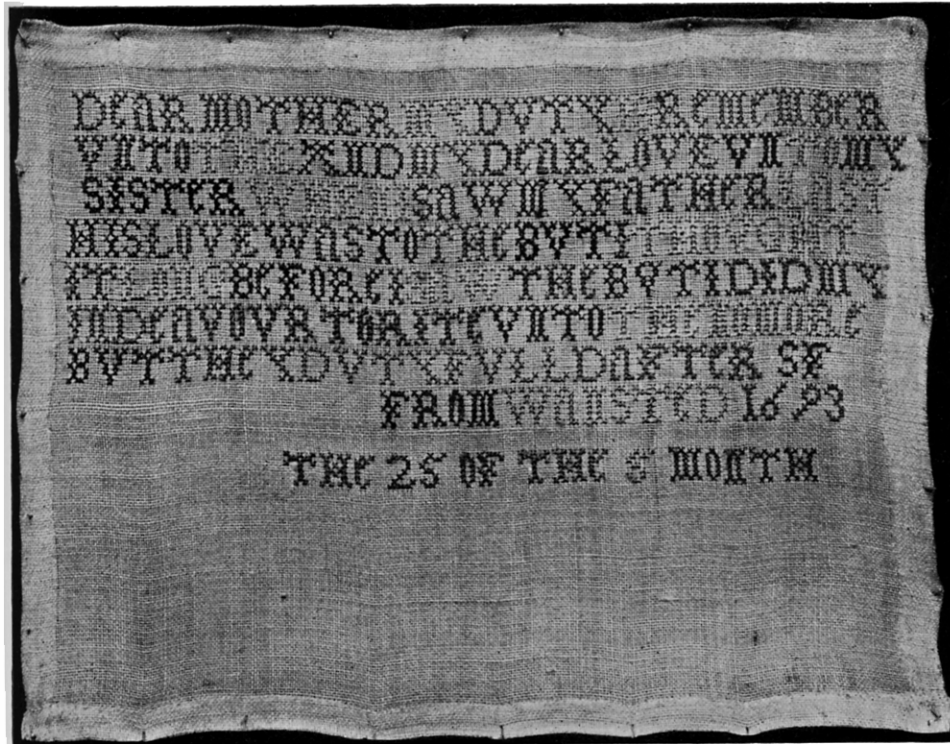 DEAR MOTHER MY DVTY REMEMBER
VNTO THE AND MY DEAR LOVE VNTO MY
SISTER WHEN I SAW MY FATHER LAST
HIS LOVE WAS TO THE BVT I THOVGHT
IT LONG BEFORE I THE BVT I DID MY
INDEAVOVR TO RITE VNTO THE NO MORE
BVT THE Y DVTYFVLL DAFTER SF
FROM WANSTED 1693
THE 25 OF THE 5 MONTH